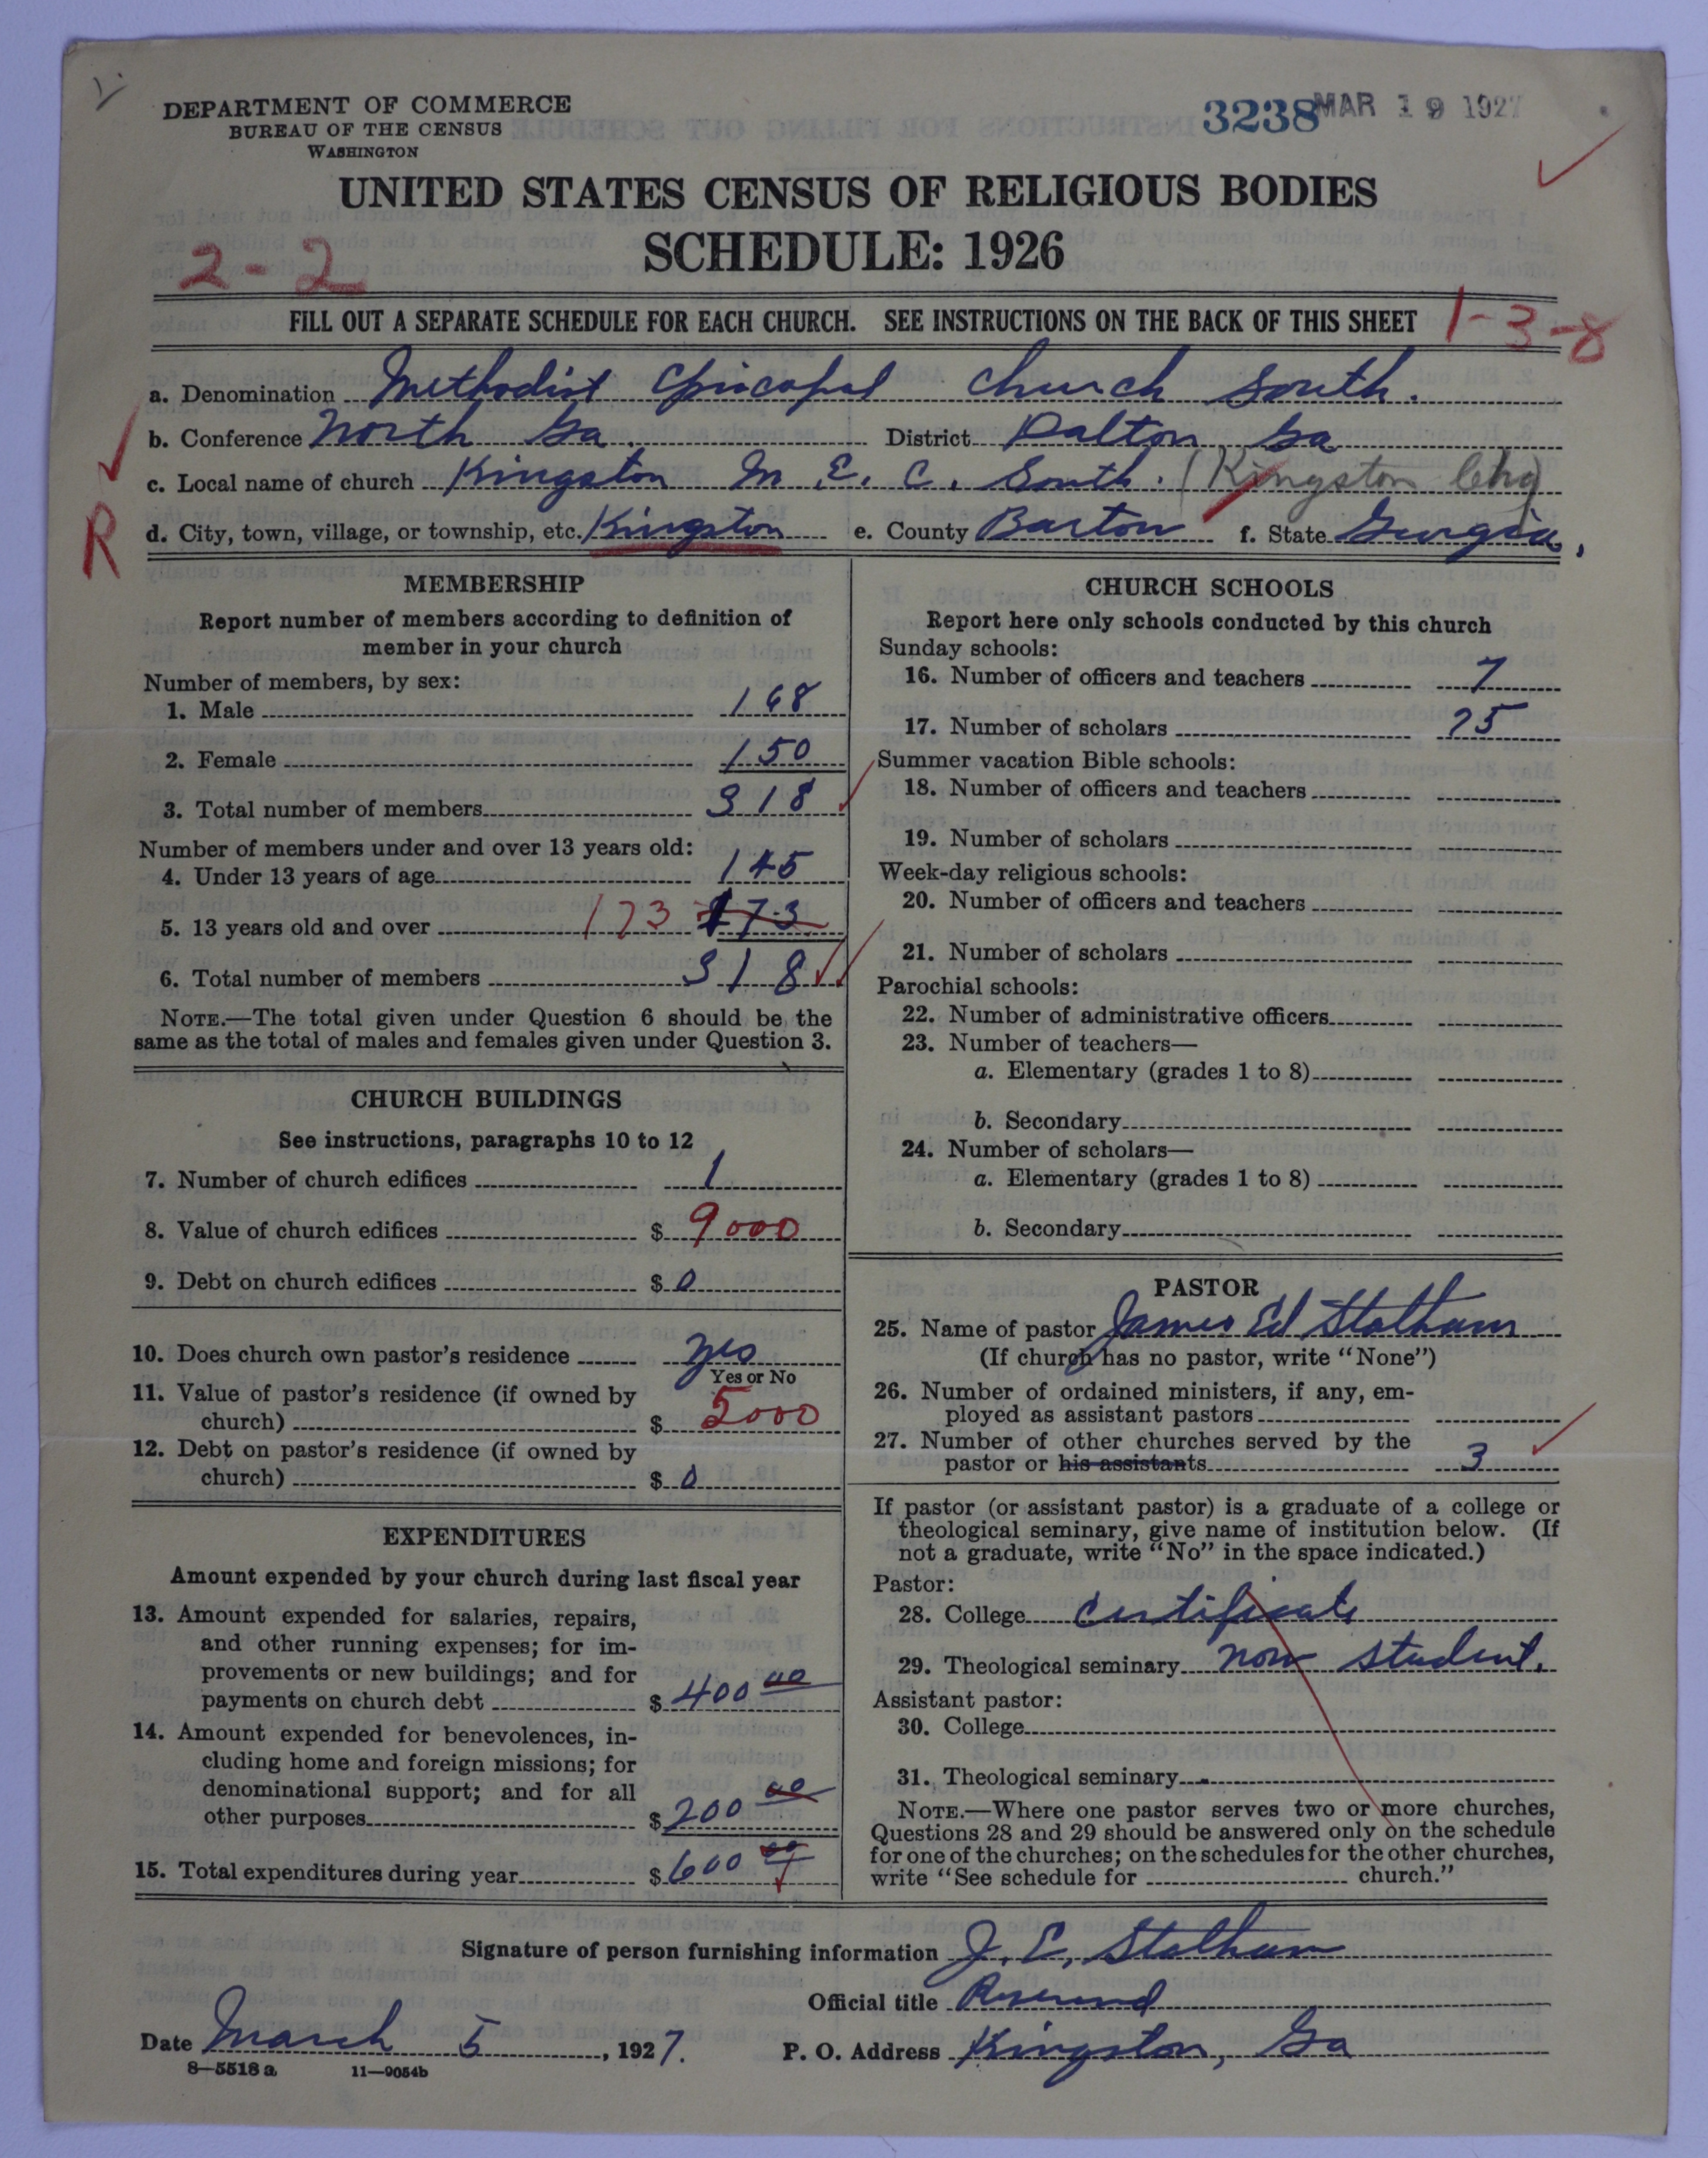 DEPARTMENT OF COMMERCE
BUREAU OF THE CENSUS
WASHINGTON
3238 MAR 19 1927
UNITED STATES CENSUS OF RELIGIOUS BODIES
SCHEDULE: 1926
2-2
FILL OUT A SEPARATE SCHEDULE FOR EACH CHURCH. SEE INSTRUCTIONS ON THE BACK OF THIS SHEET
1-3-8
a. Denomination Methodist Episcopal Church South.
b. Conference North Ga. District Dalton, Ga
c. Local name of church Kingston M. E. C. South. (Kingston Chg)
R
d. City, town, village, or township, etc. Kingston e. County Barton f. State Georgia,
MEMBERSHIP
Report number of members according to definition of
member in your church
Number of members, by sex:
1. Male 168
2. Female 150
3. Total number of members 318
Number of members under and over 13 years old:
4. Under 13 years of age 145
5. 13 years old and over 173 173
6. Total number of members 318
NOTE.—The total given under Question 6 should be the
same as the total of males and females given under Question 3.
CHURCH BUILDINGS
See instructions, paragraphs 10 to 12
7. Number of church edifices 1
8. Value of church edifices $ 9000
9. Debt on church edifices $ 0
10. Does church own pastor's residence yes
Yes or No
11. Value of pastor's residence (if owned by
church) $ 5000
12. Debt on pastor's residence (if owned by
church) $ 0
EXPENDITURES
Amount expended by your church during last fiscal year
13. Amount expended for salaries, repairs,
and other running expenses; for im-
provements or new buildings; and for
payments on church debt $ 400 00
14. Amount expended for benevolences, in-
cluding home and foreign missions; for
denominational support; and for all
other purposes $ 200 00
15. Total expenditures during year $ 600 00
CHURCH SCHOOLS
Report here only schools conducted by this church
Sunday schools:
16. Number of officers and teachers 7
17. Number of scholars 75
Summer vacation Bible schools:
18. Number of officers and teachers
19. Number of scholars
Week-day religious schools:
20. Number of officers and teachers
21. Number of scholars
Parochial schools:
22. Number of administrative officers
23. Number of teachers—
a. Elementary (grades 1 to 8)
b. Secondary
24. Number of scholars—
a. Elementary (grades 1 to 8)
b. Secondary
PASTOR
25. Name of pastor James Ed Statham
(If church has no pastor, write "None")
26. Number of ordained ministers, if any, em-
ployed as assistant pastors
27. Number of other churches served by the
pastor or his assistants 3
If pastor (or assistant pastor) is a graduate of a college or
theological seminary, give name of institution below. (If
not a graduate, write "No" in the space indicated.)
Pastor:
28. College certificate
29. Theological seminary now student.
Assistant pastor:
30. College
31. Theological seminary
NOTE.—Where one pastor serves two or more churches,
Questions 28 and 29 should be answered only on the schedule
for one of the churches; on the schedules for the other churches,
write "See schedule for church."
Signature of person furnishing information J. E. Statham
Official title Reverend
Date March 5, 1927. P. O. Address Kingston, Ga
8—5518 a 11—9054b